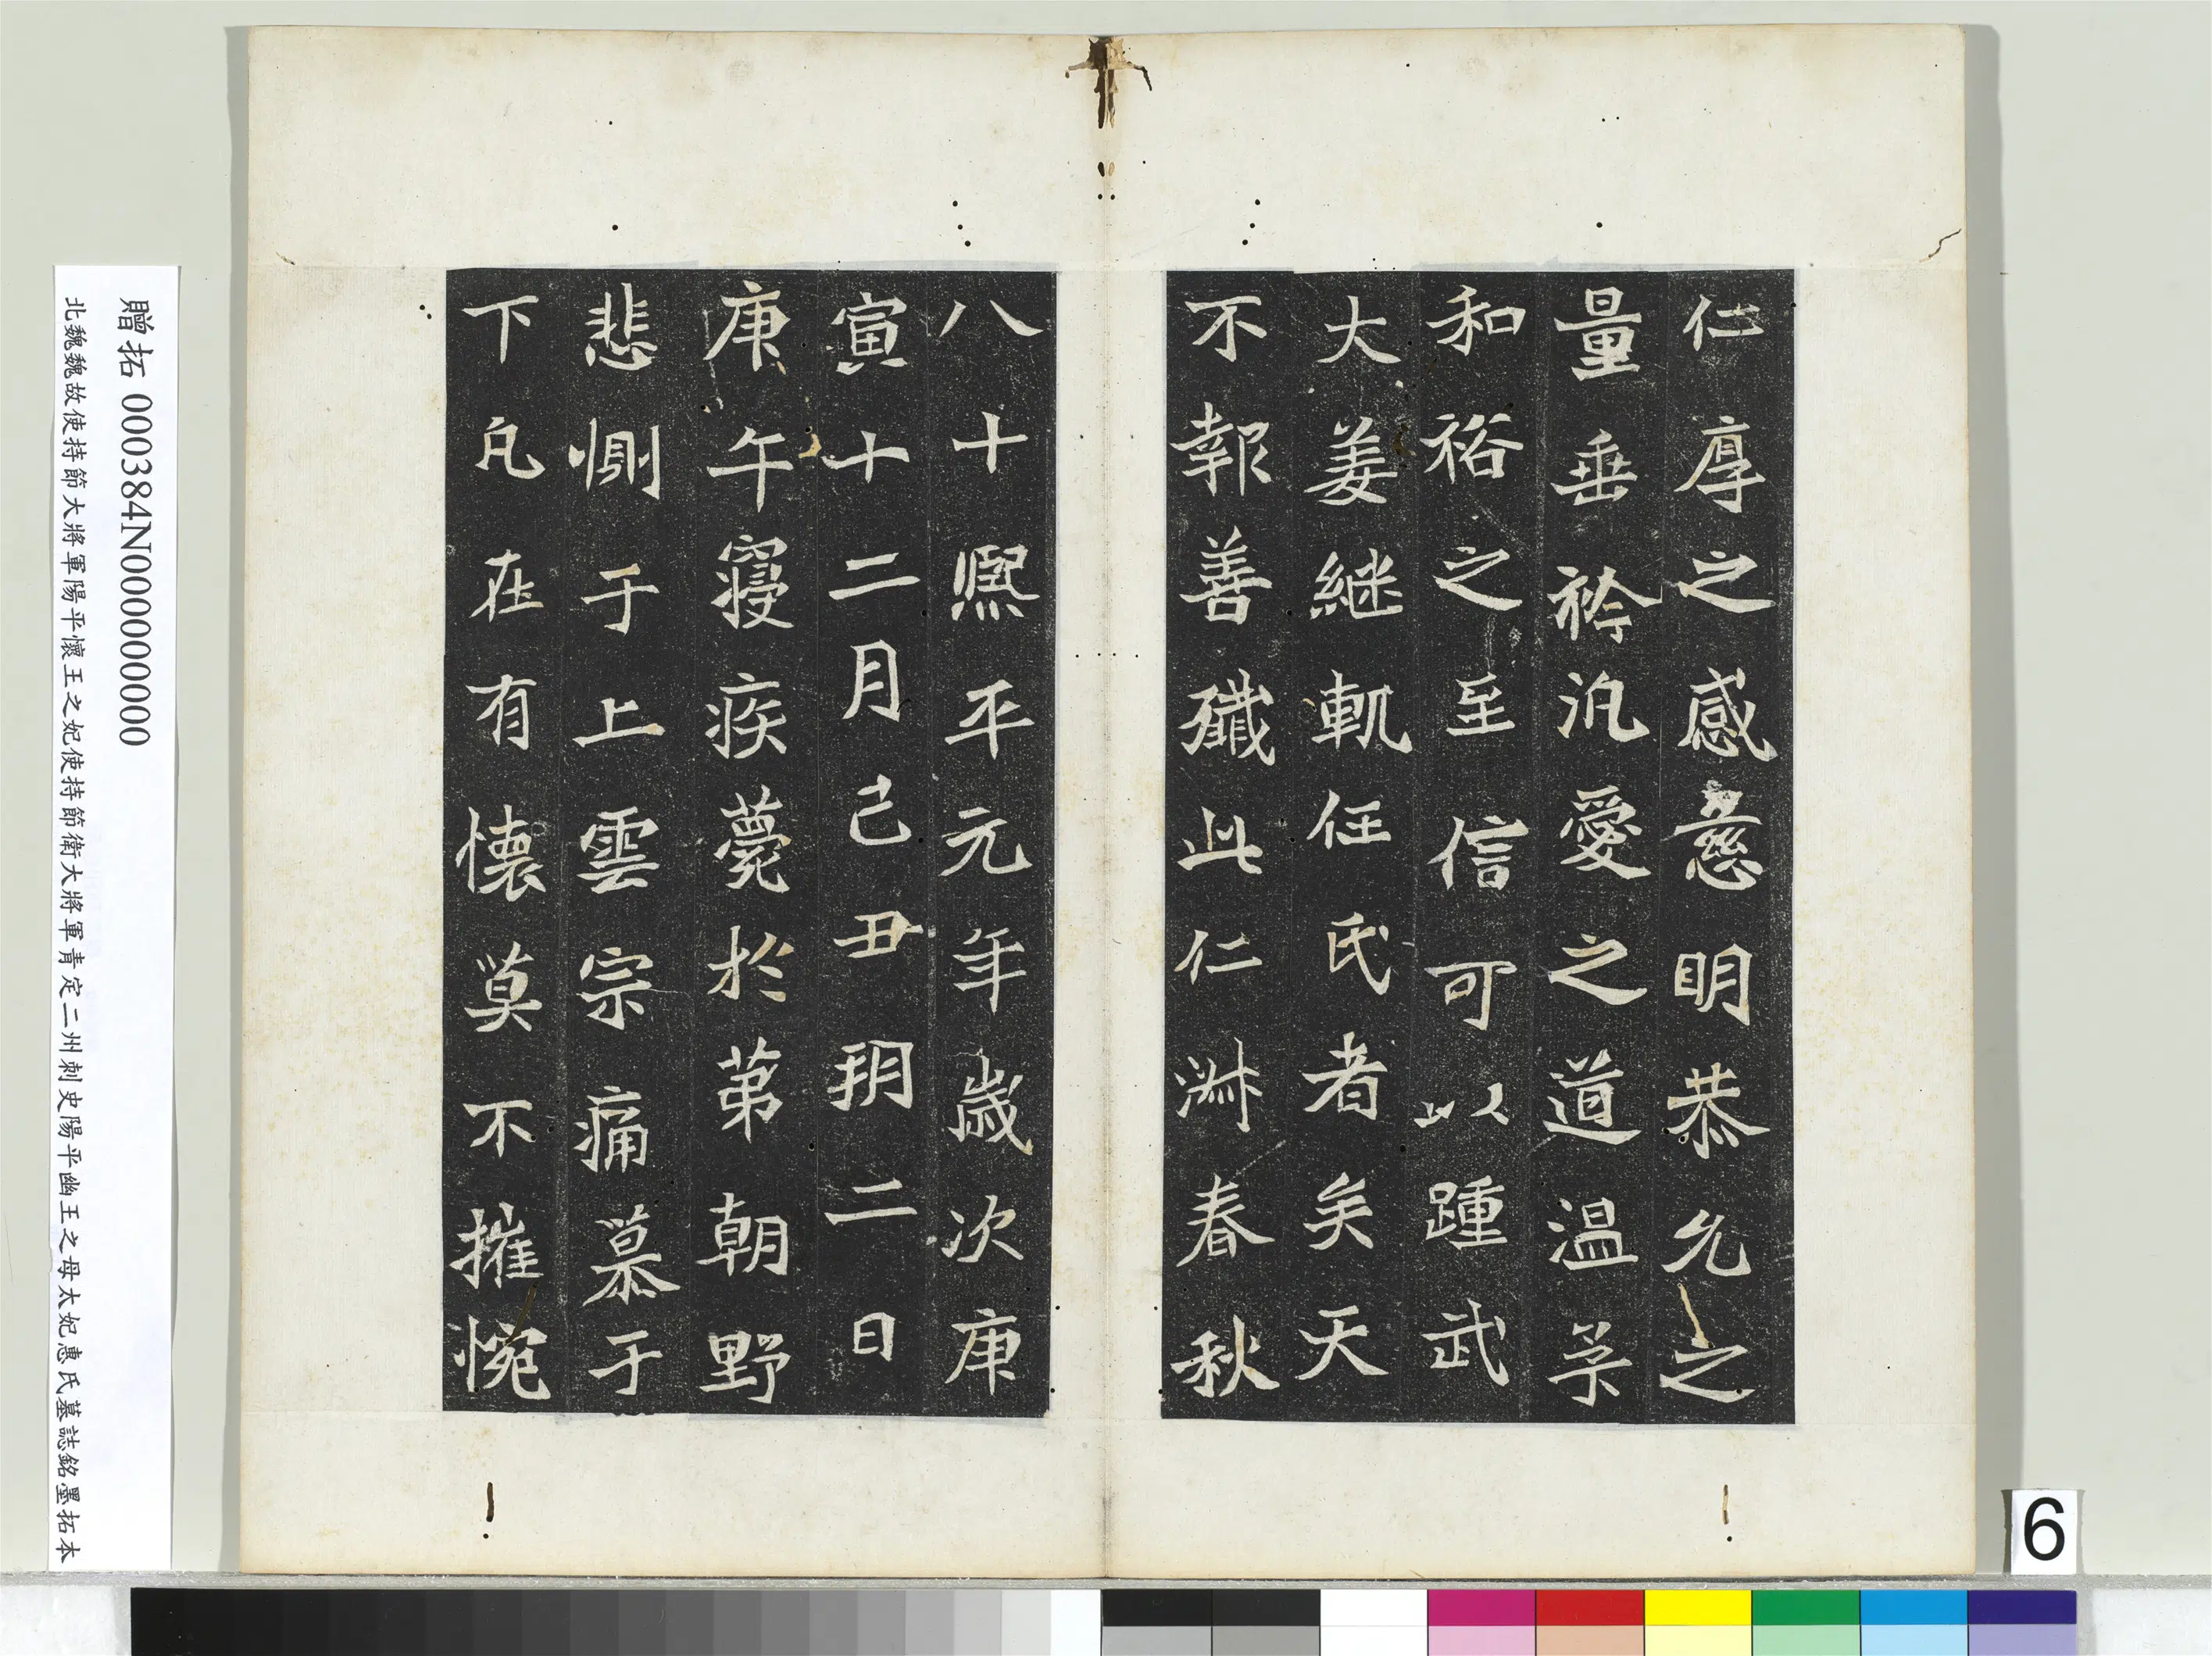 仁厚之感慈明恭允之
量垂衿汎愛之道温孚
和裕之至信可以踵武
大姜継軌任氏者矣天
不報善殲此仁淋春秋
八十熈平元年歳次庚
寅十二月己丑玥二日
庚午寝疾薨於苐朝野
悲惻于上雲宗痛慕于
下凡在有懐莫不摧惋
贈拓 000384N000000000
北魏魏故使持節大將軍陽平懷王之妃使持節衛大將軍青定二州刺史陽平幽王之母太妃惠氏墓誌銘墨拓本
6